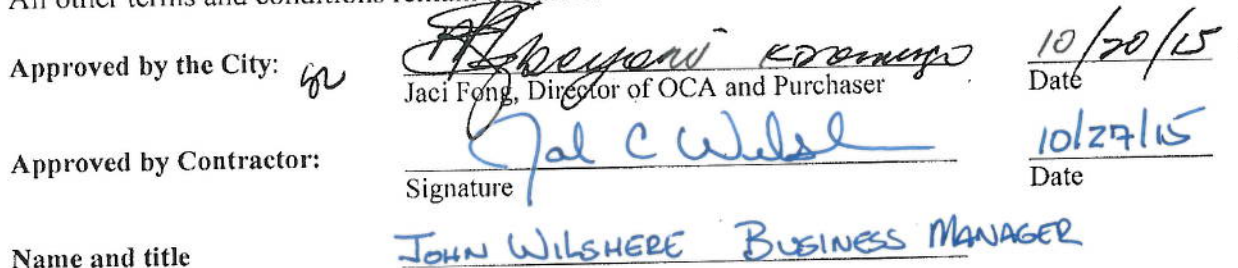 All other terms and conditions remain
Approved by the City: 10/20/15
Jaci Fong, Director of OCA and Purchaser Date
Approved by Contractor: 10/27/15
Signature Date
Name and title JOHN WILSHERE BUSINESS MANAGER